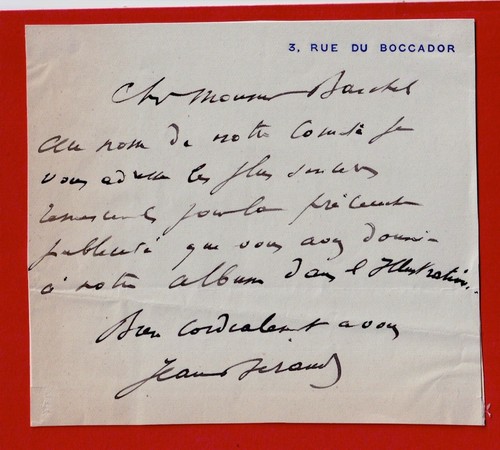 3, RUE DU BOCCADOR
Cher Monsieur Baschet
Au nom de notre Comité je
vous adresse les plus sincères
remerciements pour la précieuse
publicité que vous avez donnée
à notre album dans l'Illustration.
Bien cordialement à vous
Jean Béraud